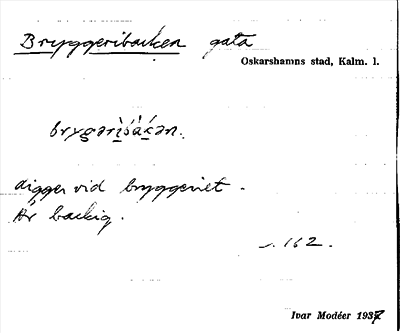 Bryggeribacken gata
Oskarshamns stad, Kalm. l.
ligger vid bryggeriet.
Är backig.
s. 162.
Ivar Modéer 1937